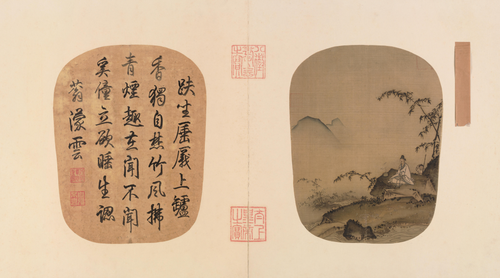 趺坐上鑪
香獨自焚竹風拂
青煙趣在聞不聞
奚僮立欲睡生認
蓊濛雲